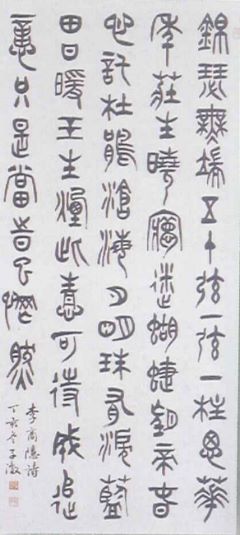 錦瑟無端五十弦一弦一柱思華
年莊生曉夢迷蝴蝶望帝春
心託杜鵑滄海月明珠有淚藍
田日暖玉生煙此情可待成追
憶只是當時已惘然
李商隱詩
丁亥冬子